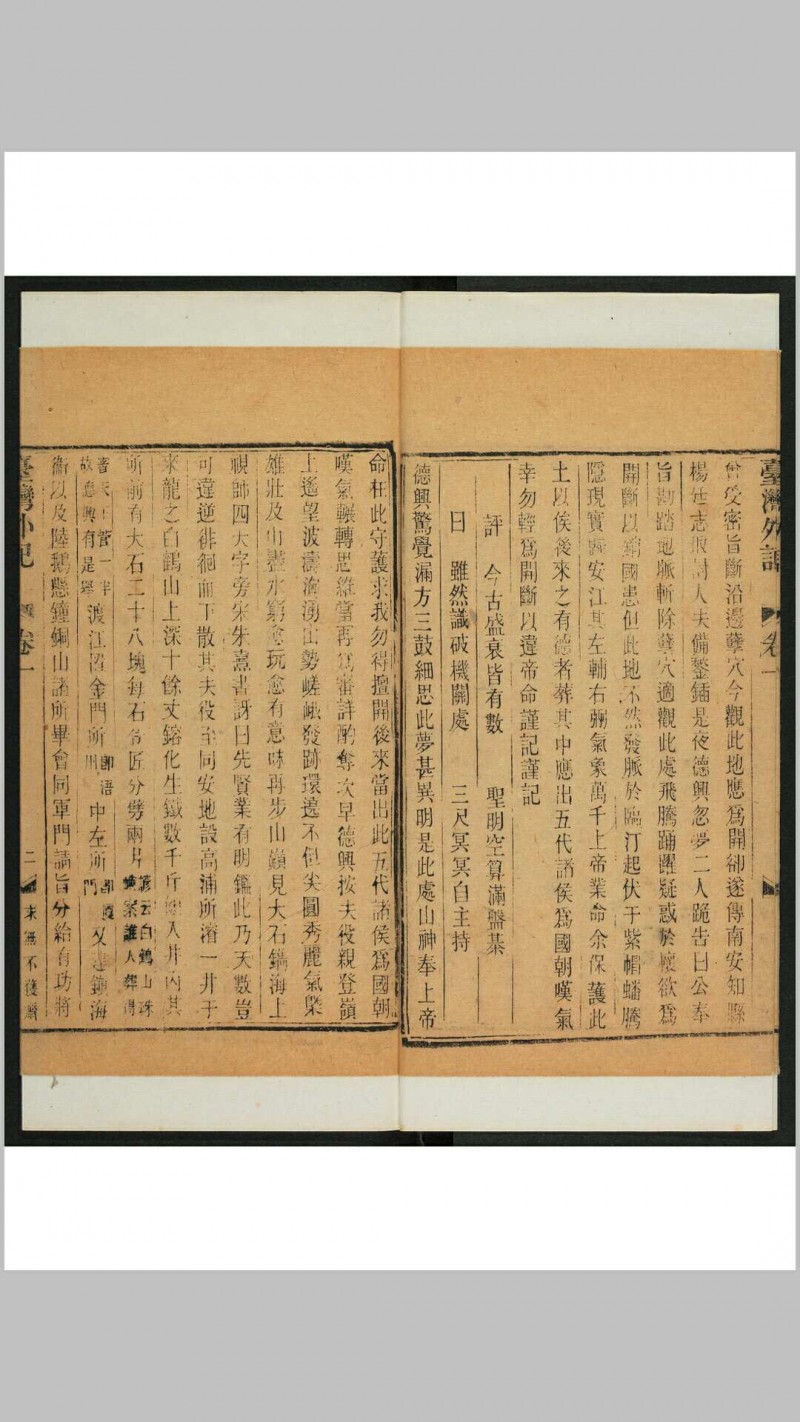 臺灣外記 卷一
曾受密旨斷沿邊孽穴今觀此地應爲開卻遂傳南安知縣
楊廷志取討人夫備鏨鍤是夜德興忽夢二人跪告曰公奉
旨踏地脈斬除孽穴適觀此處飛騰踊躍疑惑於懷欲爲
開斷以國患但此地不然發脈於臨汀起伏于紫帽蟠騰
隱現實安江其左輔右弼氣象萬千上帝業命余保護此
土以俟後來之有德者葬其中應出五代諸侯爲國朝嘆氣
幸勿輕爲開斷以違帝命謹記謹記
評 今古盛衰皆有數 聖明空算滿盤棊
曰 雖然識破機關處 三尺冥冥自主持
德興驚覺漏方三鼓細思此夢甚異明是此處山神奉上帝
命在此守護求我勿得擅開後來當出此五代諸侯爲國朝
嘆氣輾轉思維當再爲審詳酌奪次早德興按夫役親登嶺
上遙望波濤洶湧出勢嵯峨發跡環遶不但尖圓秀麗氣槩
雄壯及山盡水窮愈玩愈有意味再步山嶺見大石鐫海上
視師四大字旁宋朱熹書訝曰先賢業有明鑑此乃天數豈
可違逆徘徊而下散其夫役至同安地設高浦所濬一井于
來龍之白鶴山上深十餘丈鎔化生鐵數千斤入井內其
所前有大石二十八塊每石各匠分劈兩片
䜟云白鶴山珠
案誰人葬得
著天下一半
故德興有是舉
渡江濬金門所
卽浯
州
中左所
卽廈
門
又鎮海
衞以及陸鵝懸鐘銅山諸所畢會同軍門請旨分給有功將
臺灣外記 卷一 二 求無不獲齋